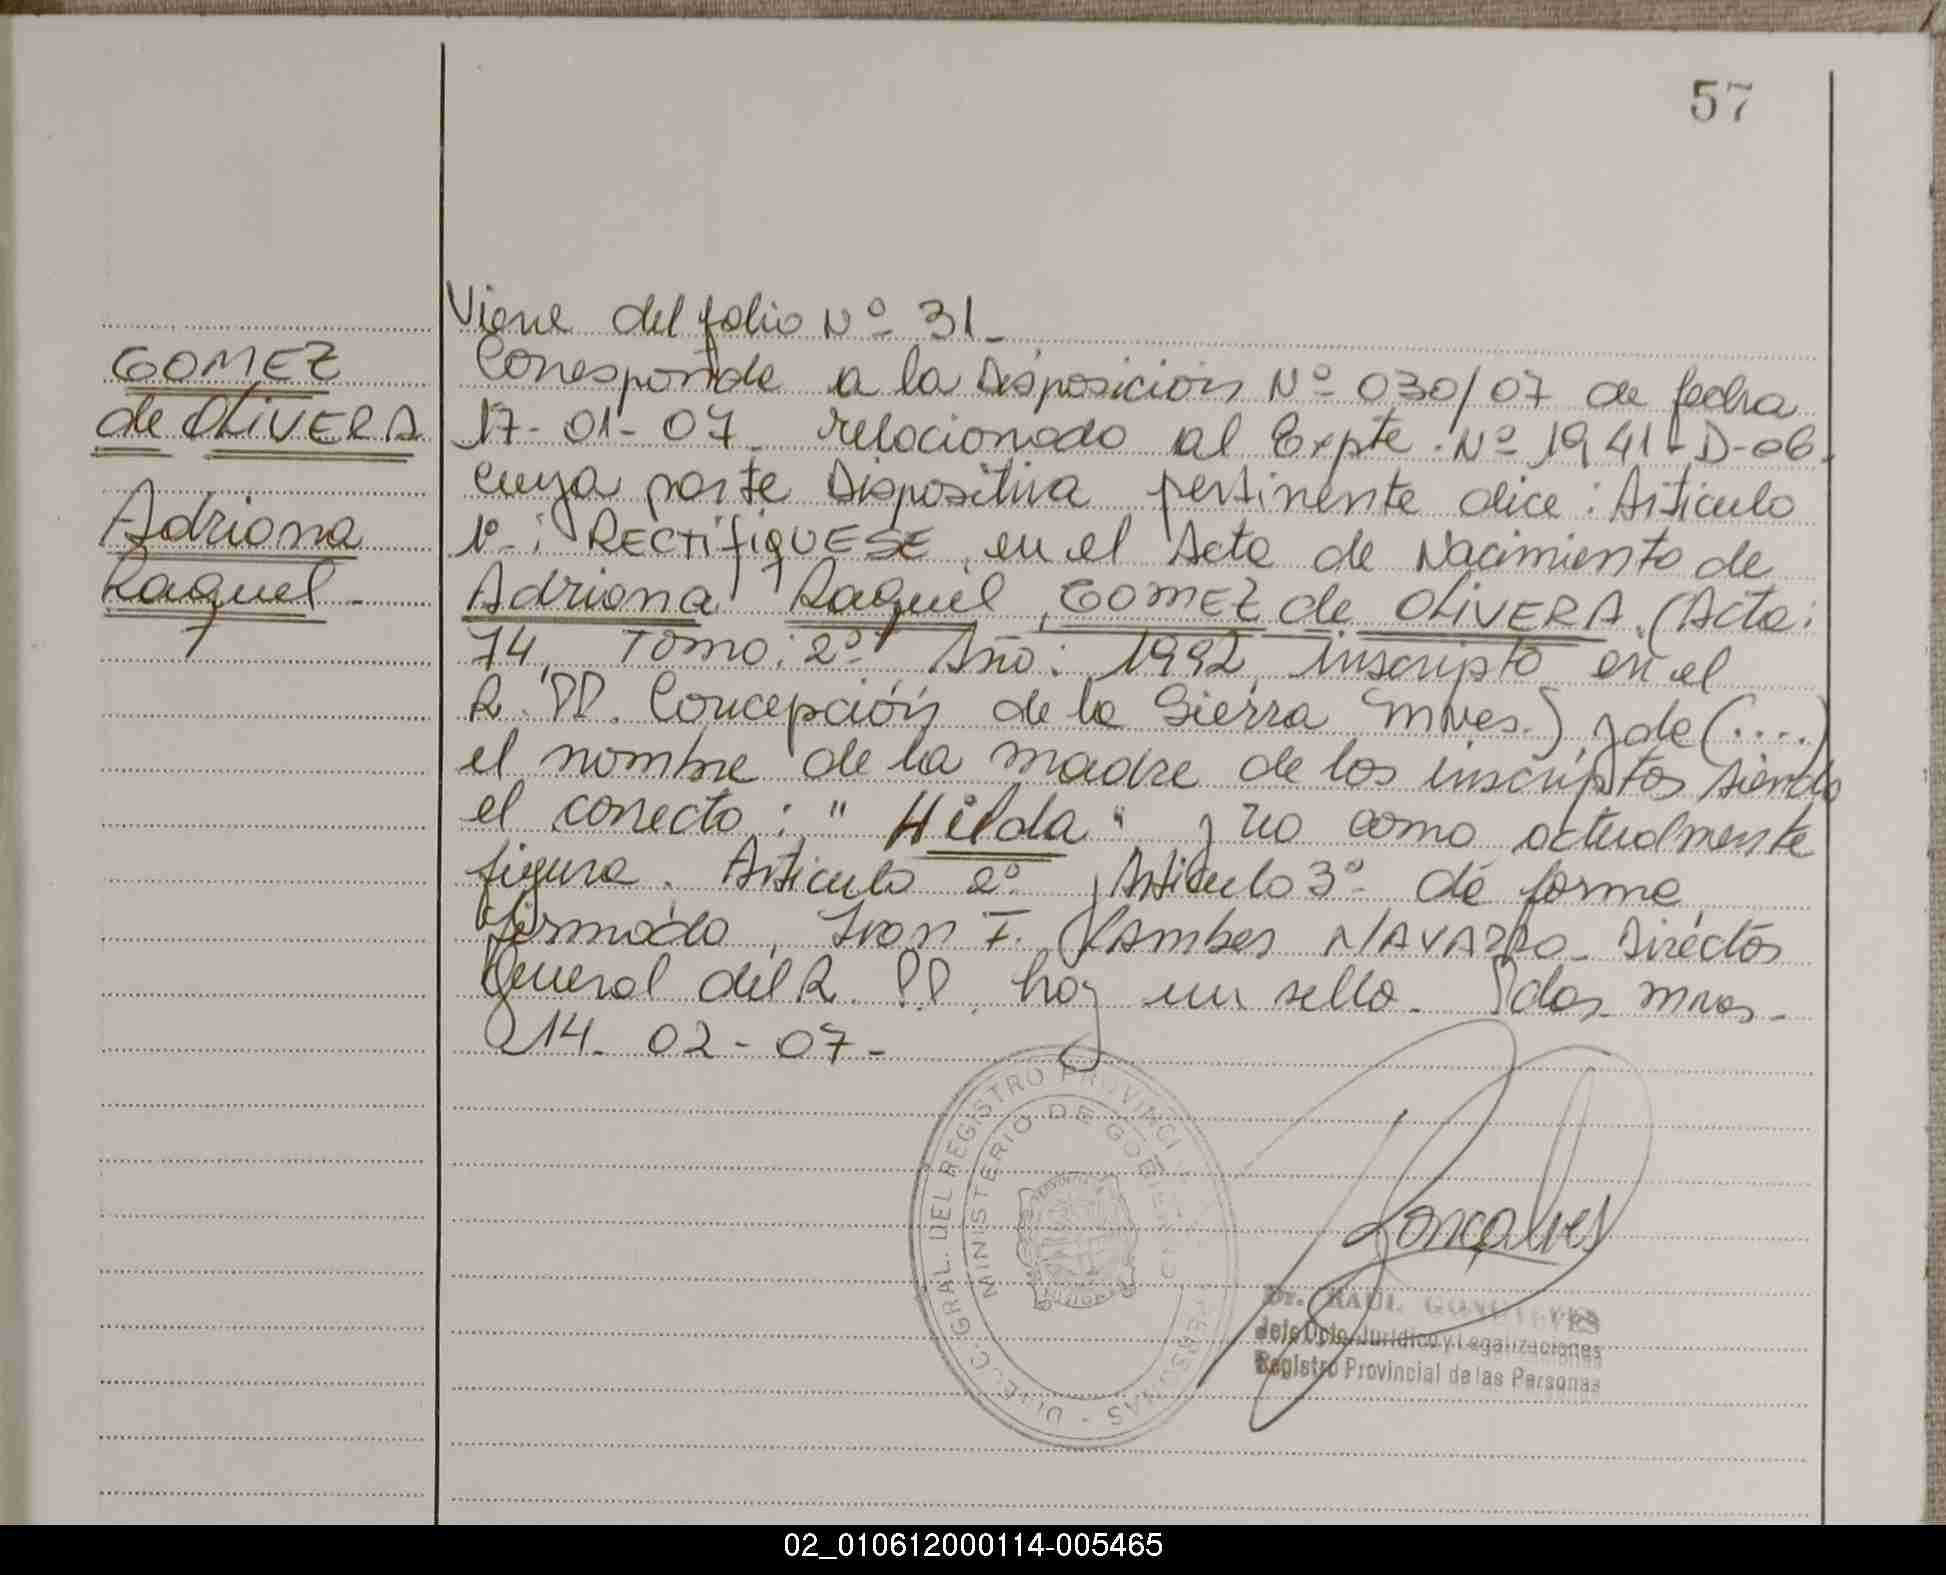 57
GOMEZ
de OLiVERA
Adriana
Raquel -
Viene del folio Nº 31 -
Corresponde a la Disposición Nº 030/07 de fecha
17-01-07. relacionado al Expte. Nº 1941-D-06.
cuya parte Dispositiva pertinente dice: Artículo
1º: RECTIFIQUESE, en el Acta de Nacimiento de
Adriana Raquel, GOMEZ de OLiVERA. (Acta:
74, Tomo: 2º, Año: 1992, inscripto en el
R. PP. Concepción de la Sierra Mnes.) y de (....)
el nombre de la madre de los inscriptos siendo
el correcto: " Hilda " y no como actualmente
figura. Artículo 2º y Artículo 3º de forma,
firmado, Ivan F. Kamber NAVARRO. Director
General del R. PP. hay un sello. Pdas. Mnes.
14 - 02 - 07 -
DIREC. GRAL. DEL REGISTRO PROVINCI PERSONAS
MINISTERIO DE GOBIERNO
Gonçalves
Dr. RAUL GONCALVES
Jefe Dpto. Jurídico y Legalizaciones
Registro Provincial de las Personas
02_010612000114-005465